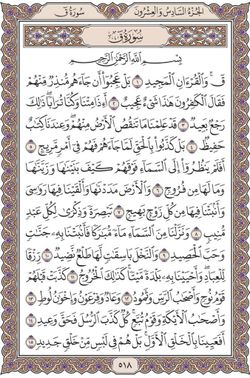 الجزء السادس والعشرون
سورة ق
سُورَةُ قٓ
بِسْمِ ٱللَّهِ ٱلرَّحْمَٰنِ ٱلرَّحِيمِ
قٓ ۚ وَٱلْقُرْءَانِ ٱلْمَجِيدِ ١ بَلْ عَجِبُوٓا۟ أَن جَآءَهُم مُّنذِرٌ مِّنْهُمْ
فَقَالَ ٱلْكَٰفِرُونَ هَٰذَا شَىْءٌ عَجِيبٌ ٢ أَءِذَا مِتْنَا وَكُنَّا تُرَابًا ۖ ذَٰلِكَ
رَجْعٌۢ بَعِيدٌ ٣ قَدْ عَلِمْنَا مَا تَنقُصُ ٱلْأَرْضُ مِنْهُمْ ۖ وَعِندَنَا كِتَٰبٌ
حَفِيظٌۢ ٤ بَلْ كَذَّبُوا۟ بِٱلْحَقِّ لَمَّا جَآءَهُمْ فَهُمْ فِىٓ أَمْرٍ مَّرِيجٍ ٥
أَفَلَمْ يَنظُرُوٓا۟ إِلَى ٱلسَّمَآءِ فَوْقَهُمْ كَيْفَ بَنَيْنَٰهَا وَزَيَّنَّٰهَا
وَمَا لَهَا مِن فُرُوجٍ ٦ وَٱلْأَرْضَ مَدَدْنَٰهَا وَأَلْقَيْنَا فِيهَا رَوَٰسِىَ
وَأَنۢبَتْنَا فِيهَا مِن كُلِّ زَوْجٍۭ بَهِيجٍ ٧ تَبْصِرَةً وَذِكْرَىٰ لِكُلِّ عَبْدٍ
مُّنِيبٍ ٨ وَنَزَّلْنَا مِنَ ٱلسَّمَآءِ مَآءً مُّبَٰرَكًا فَأَنۢبَتْنَا بِهِۦ جَنَّٰتٍ
وَحَبَّ ٱلْحَصِيدِ ٩ وَٱلنَّخْلَ بَاسِقَٰتٍ لَّهَا طَلْعٌ نَّضِيدٌ ١٠ رِّزْقًا
لِّلْعِبَادِ ۖ وَأَحْيَيْنَا بِهِۦ بَلْدَةً مَّيْتًا ۚ كَذَٰلِكَ ٱلْخُرُوجُ ١١ كَذَّبَتْ قَبْلَهُمْ
قَوْمُ نُوحٍ وَأَصْحَٰبُ ٱلرَّسِّ وَثَمُودُ ١٢ وَعَادٌ وَفِرْعَوْنُ وَإِخْوَٰنُ لُوطٍ ١٣
وَأَصْحَٰبُ ٱلْأَيْكَةِ وَقَوْمُ تُبَّعٍ ۚ كُلٌّ كَذَّبَ ٱلرُّسُلَ فَحَقَّ وَعِيدِ ١٤
أَفَعَيِينَا بِٱلْخَلْقِ ٱلْأَوَّلِ ۚ بَلْ هُمْ فِى لَبْسٍ مِّنْ خَلْقٍ جَدِيدٍ ١٥
٥١٨